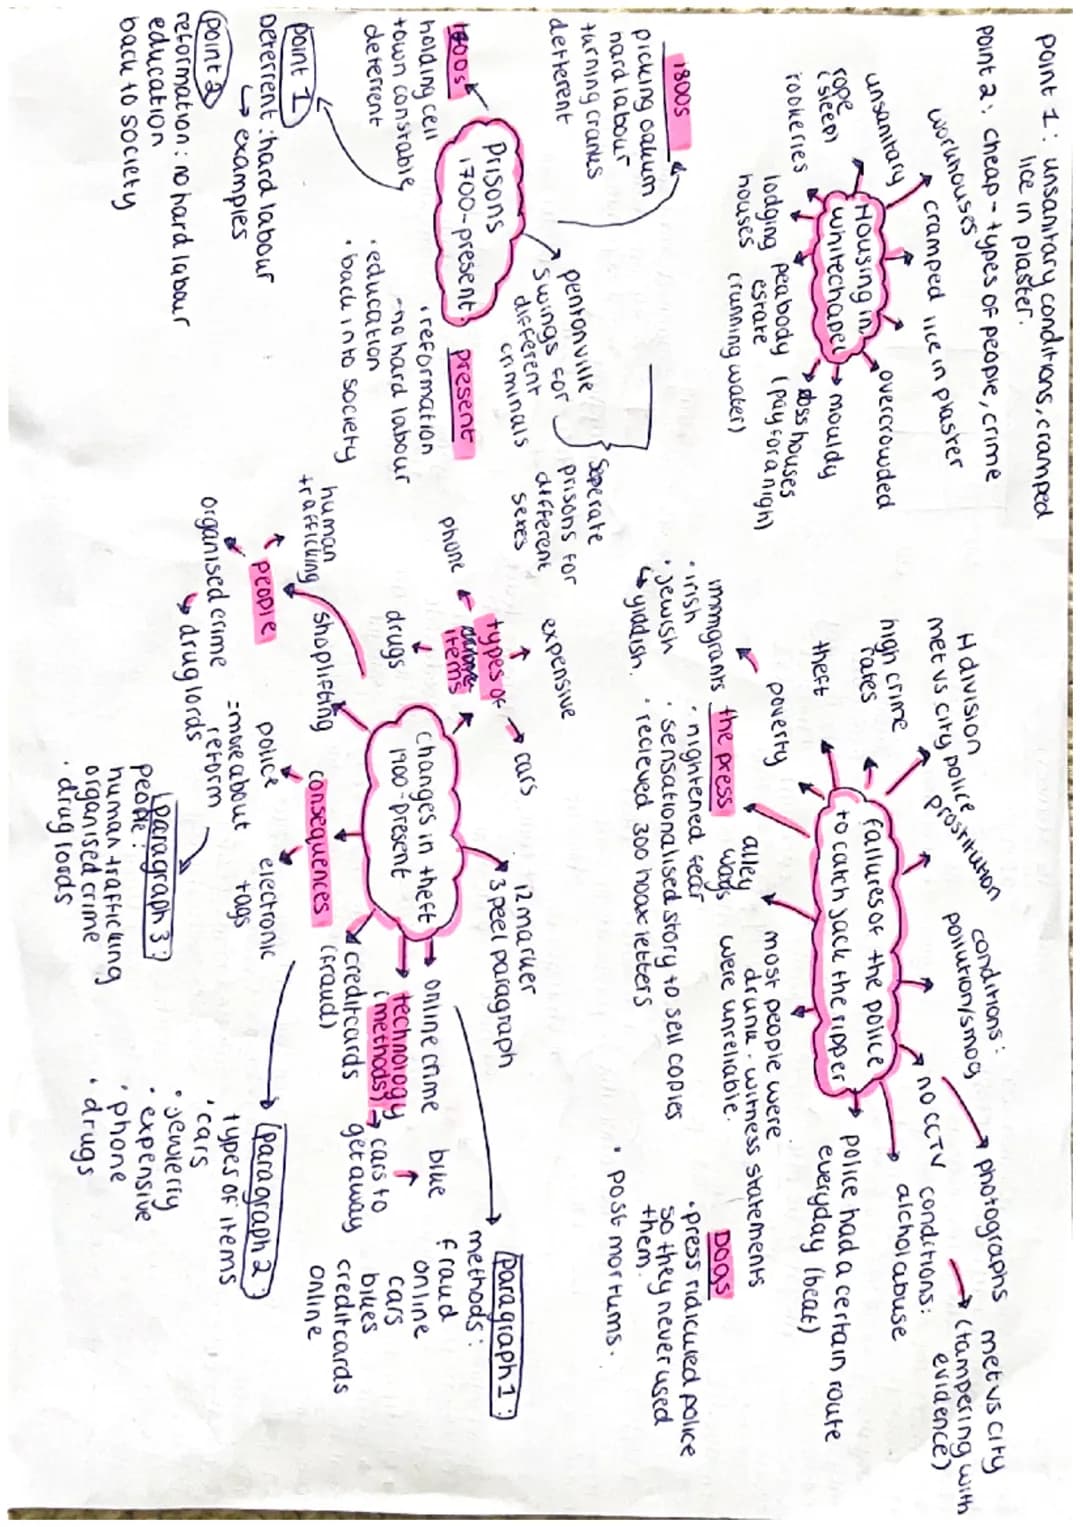 point 1: unsanitary conditions, cramped
lice in plaster.
point 2: cheap - types of people, crime
workhouses
cramped lice in plaster
unsanitary
overcrowded
rope
(sleep)
rookeries
Housing in
whitechapel
mouldy
doss houses
(pay for a nigh)
lodging
houses
peabody
estate
(running water)
H division
met vs city police
prostitution
high crime
rates
theft
poverty
immigrants
• irish
• Jewish
↳ yiddish.
failures of the police
to catch jack the ripper
conditions:
pollution/smog
photographs
met vs city
(tampering with
evidence)
no CCTV
conditions:
alchol abuse
police had a certain route
everyday (beat)
alley
ways
most people were
drunk. witness statements
were unreliable.
the press
• hightened fear
• sensationalised story to sell copies
• recieved 300 hoax letters
Dogs
• press ridiculed police
so they never used
them.
• post mortums.
1800s
picking oakum
hard labour
turning cranks
deterrent
Prisons
1700-present
1700s
holding cell
town constable
deterrent
pentonville
swings for
different
criminals
seperate
prisons for
different
sexes
present
• reformation
- no hard labour
• education
• back into society
point 1
Deterrent: hard labour
↳ examples
point 2
reformation: no hard labour
education
back to society
changes in theft
1900-present
12 marker
3 peel paragraph
expensive
types of
items
cars
phone
drugs
shoplifting
people
human
trafficking
organised crime
↳ drug lords
consequences
police
= more about
reform
electronic
tags
online crime
technology
(methods)
cars to
get away
credit cards
(fraud)
blue
paragraph 1:
methods:
fraud
online
cars
blues
credit cards
online
paragraph 2:
types of items
• cars
• Jewlerry
• expensive
• phone
• drugs
paragraph 3:
people:
human trafficking
organised crime
• drug lords